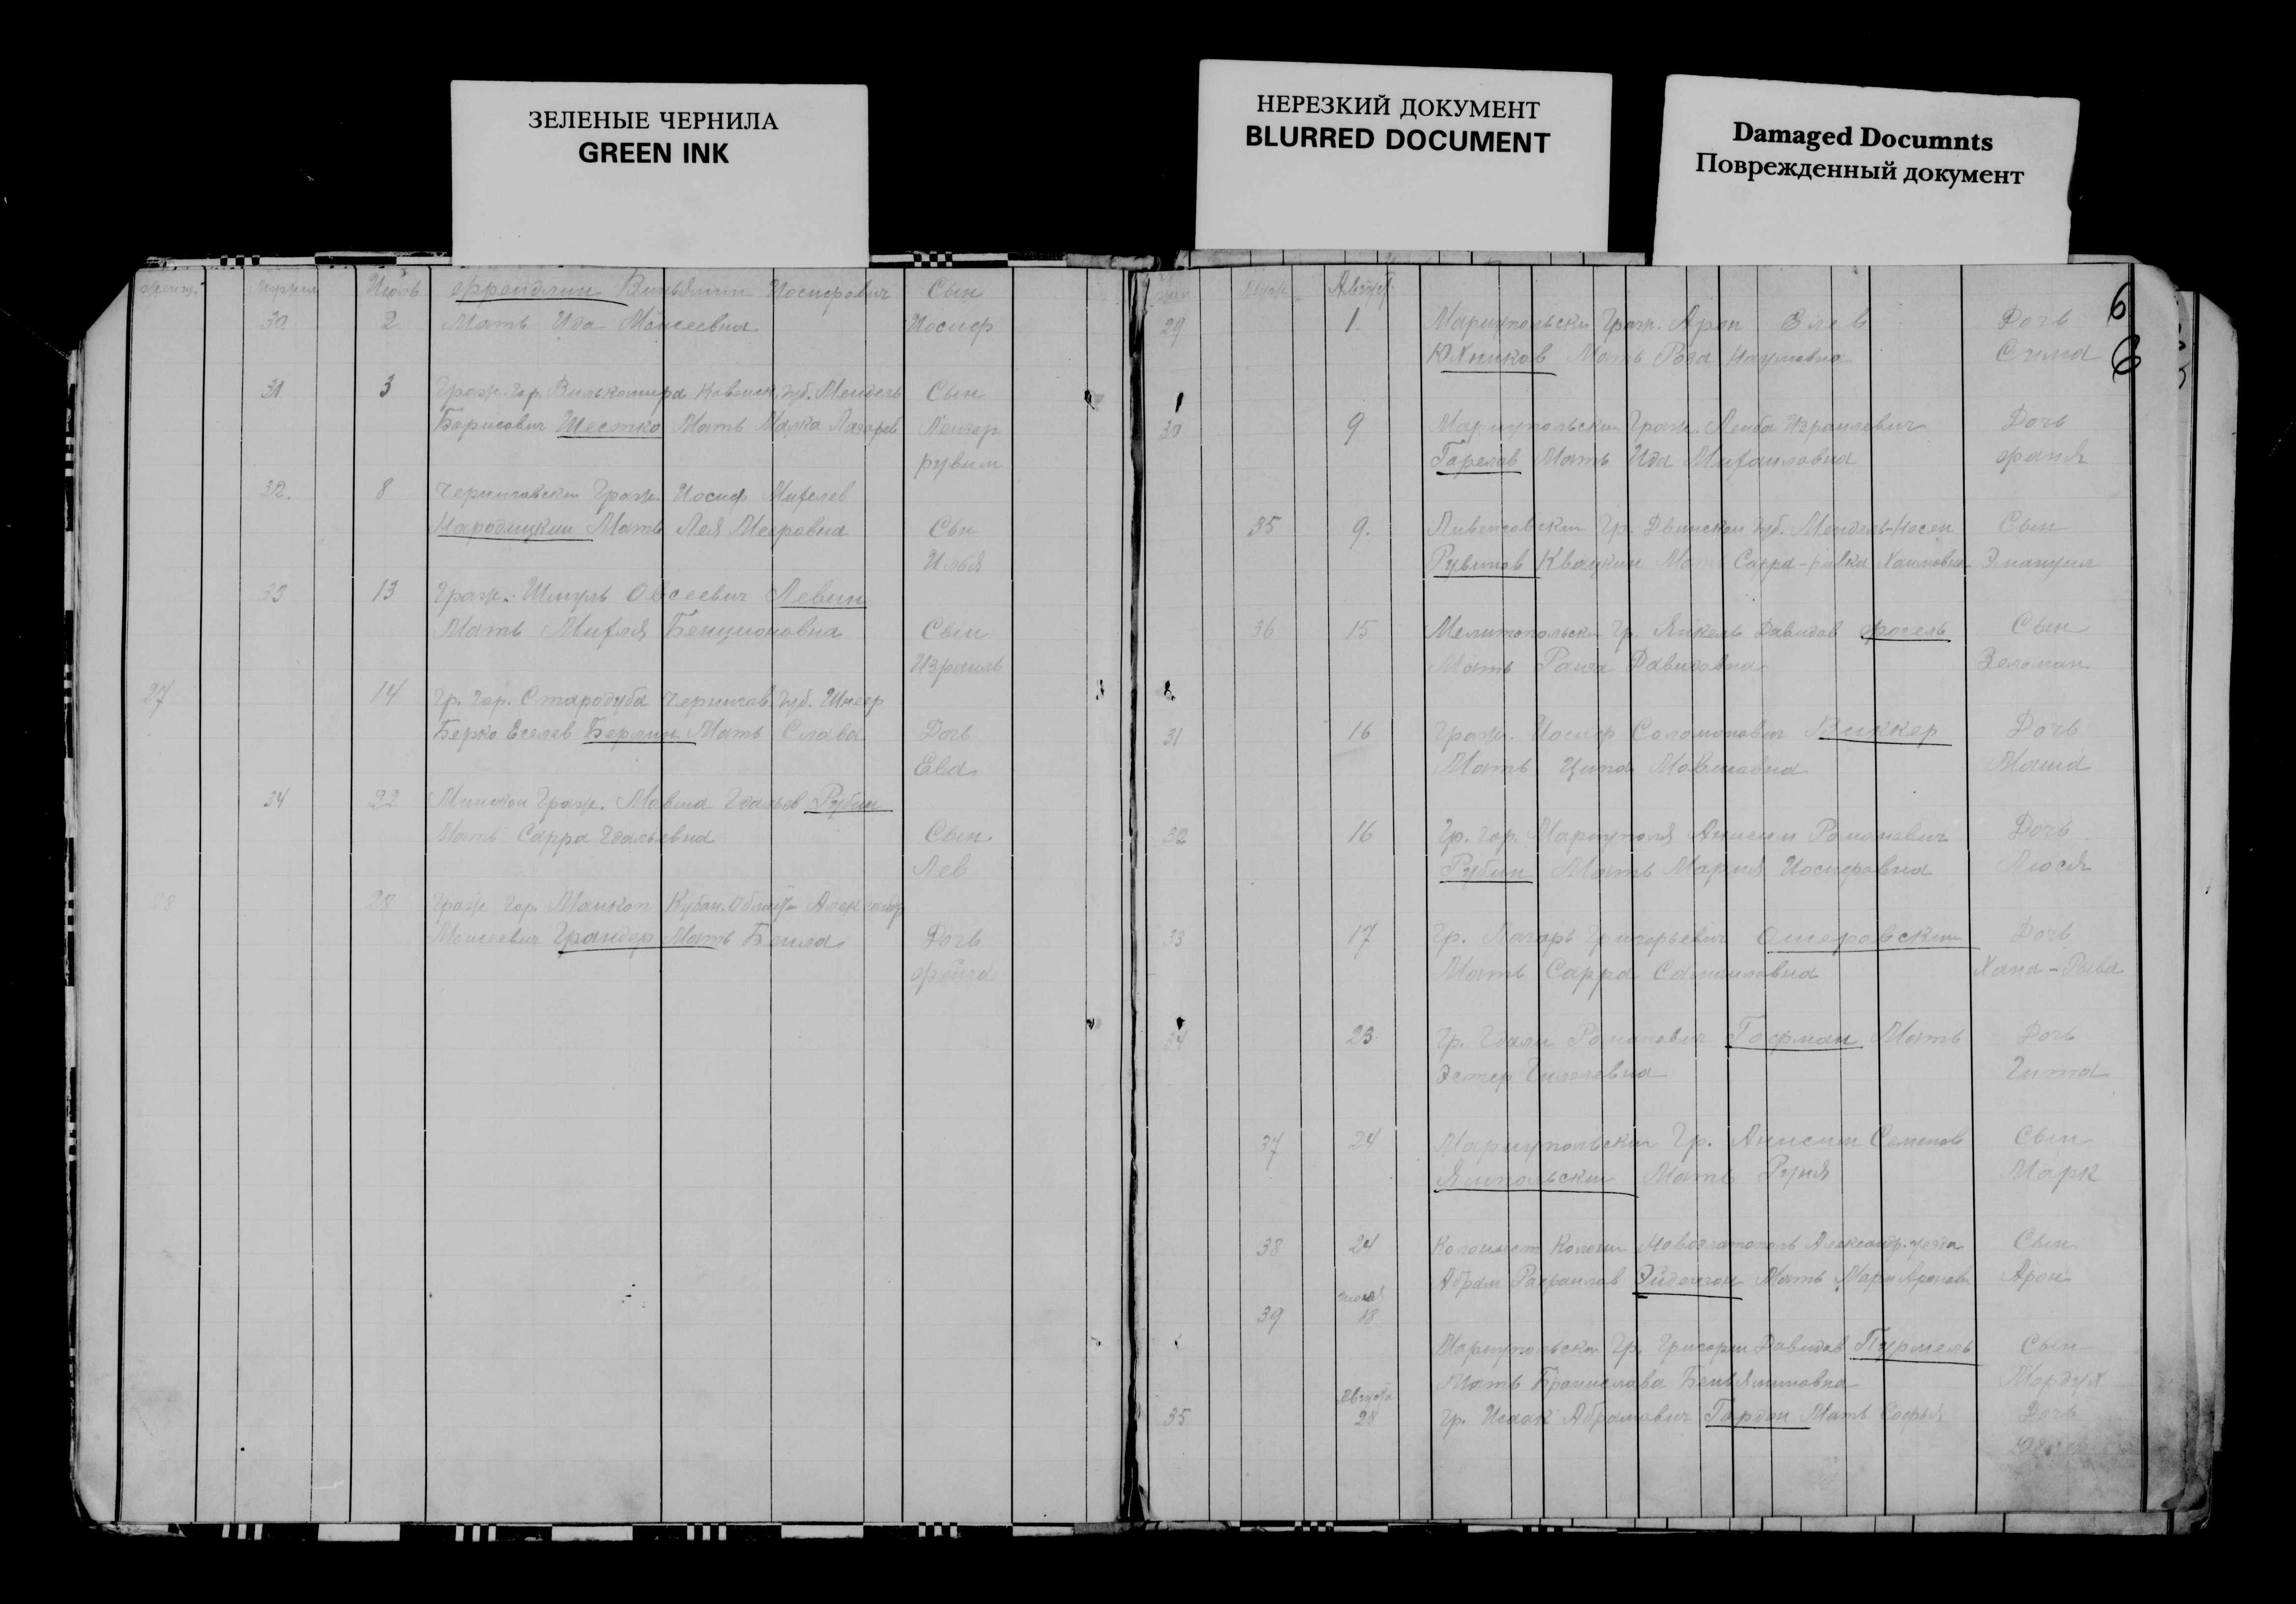 ЗЕЛЕНЫЕ ЧЕРНИЛА
GREEN INK
НЕРЕЗКИЙ ДОКУМЕНТ
BLURRED DOCUMENT
Damaged Documnts
Поврежденный документ
Июль Френдлин Виньямин Иосифович Сын
30 2 Мать Ида Моисеевна Иосиф
31 3 Граж. гор. Вилькомира Ковенск. губ. Мендель Сын
Борисович Шестко Мать Малка Лазарев Лейзер
рувим
32. 8 Черниговский Граж. Иосиф Михелев
Народицкий Мать Лея Мееровна Сын
Илья
33 13 Граж. Шмуль Овсеевич Левин
Мать Михля Бенционовна Сын
Израиль
27 14 Гр. гор. Стародуба Чернигов. губ. Шнеер
Берко Еселев Берлин Мать Слава Дочь
Ева
34 22 Минский Граж. Мовша Гдальев Рубин
Мать Сарра Гдальевна Сын
Лев
28 28 Граж гор. Майкоп Кубан. Александр
Моисеевич Грандер Мать Бейла Дочь
фейга
Август
6
29 1. Мариупольский Граж. Арон Элев Дочь
Юхников Мать Роза Наумовна Сима
6
30 9 Мариупольский Граж. Лейба Израилевич Дочь
Горелов Мать Ида Михайловна фаня
35 9. Ливенговский Гр. Двинской губ. Мендель-Носен Сын
Рувинов Квацкин Мать Сарра-ривка Хаимовна Эмануил
36 15 Мелитопольский Гр. Янкель Давидов фогель Сын
Мать Раиза Давидовна Зельман
31 16 Граж. Иосиф Соломонович Виккер Дочь
Мать Цита Мовшовна Маша
32 16 Гр. гор. Мариуполя Анисим Романович Дочь
Рубин Мать Мария Иосифовна Люся
33 17 Гр. Лазарь Григорьевич Ошеровский Дочь
Мать Сарра Самаиловна Хана-Рыва
34 23 Гр. Гдали Романович Гофман Мать Дочь
Эстер Гилелевна Гита
37 24 Мариупольский Гр. Анисим Семенов Сын
Ямпольский Мать Руня Марк
38 24 Колонист Колонии Новозлатополь Александр. уезда Сын
Абрам Рафаилов Эйдензон Мать Арон
39 июля 18
Мариупольский Гр. Григорий Давидов Пурмель Сын
Мать Брониелава Беньяминовна Мордух
Августа
35 28 Гр. Исаак Абрамович Гордон Мать Софья Дочь